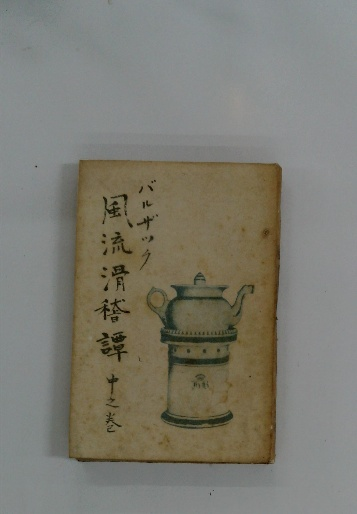 バルザック
風流滑稽譚
中之巻